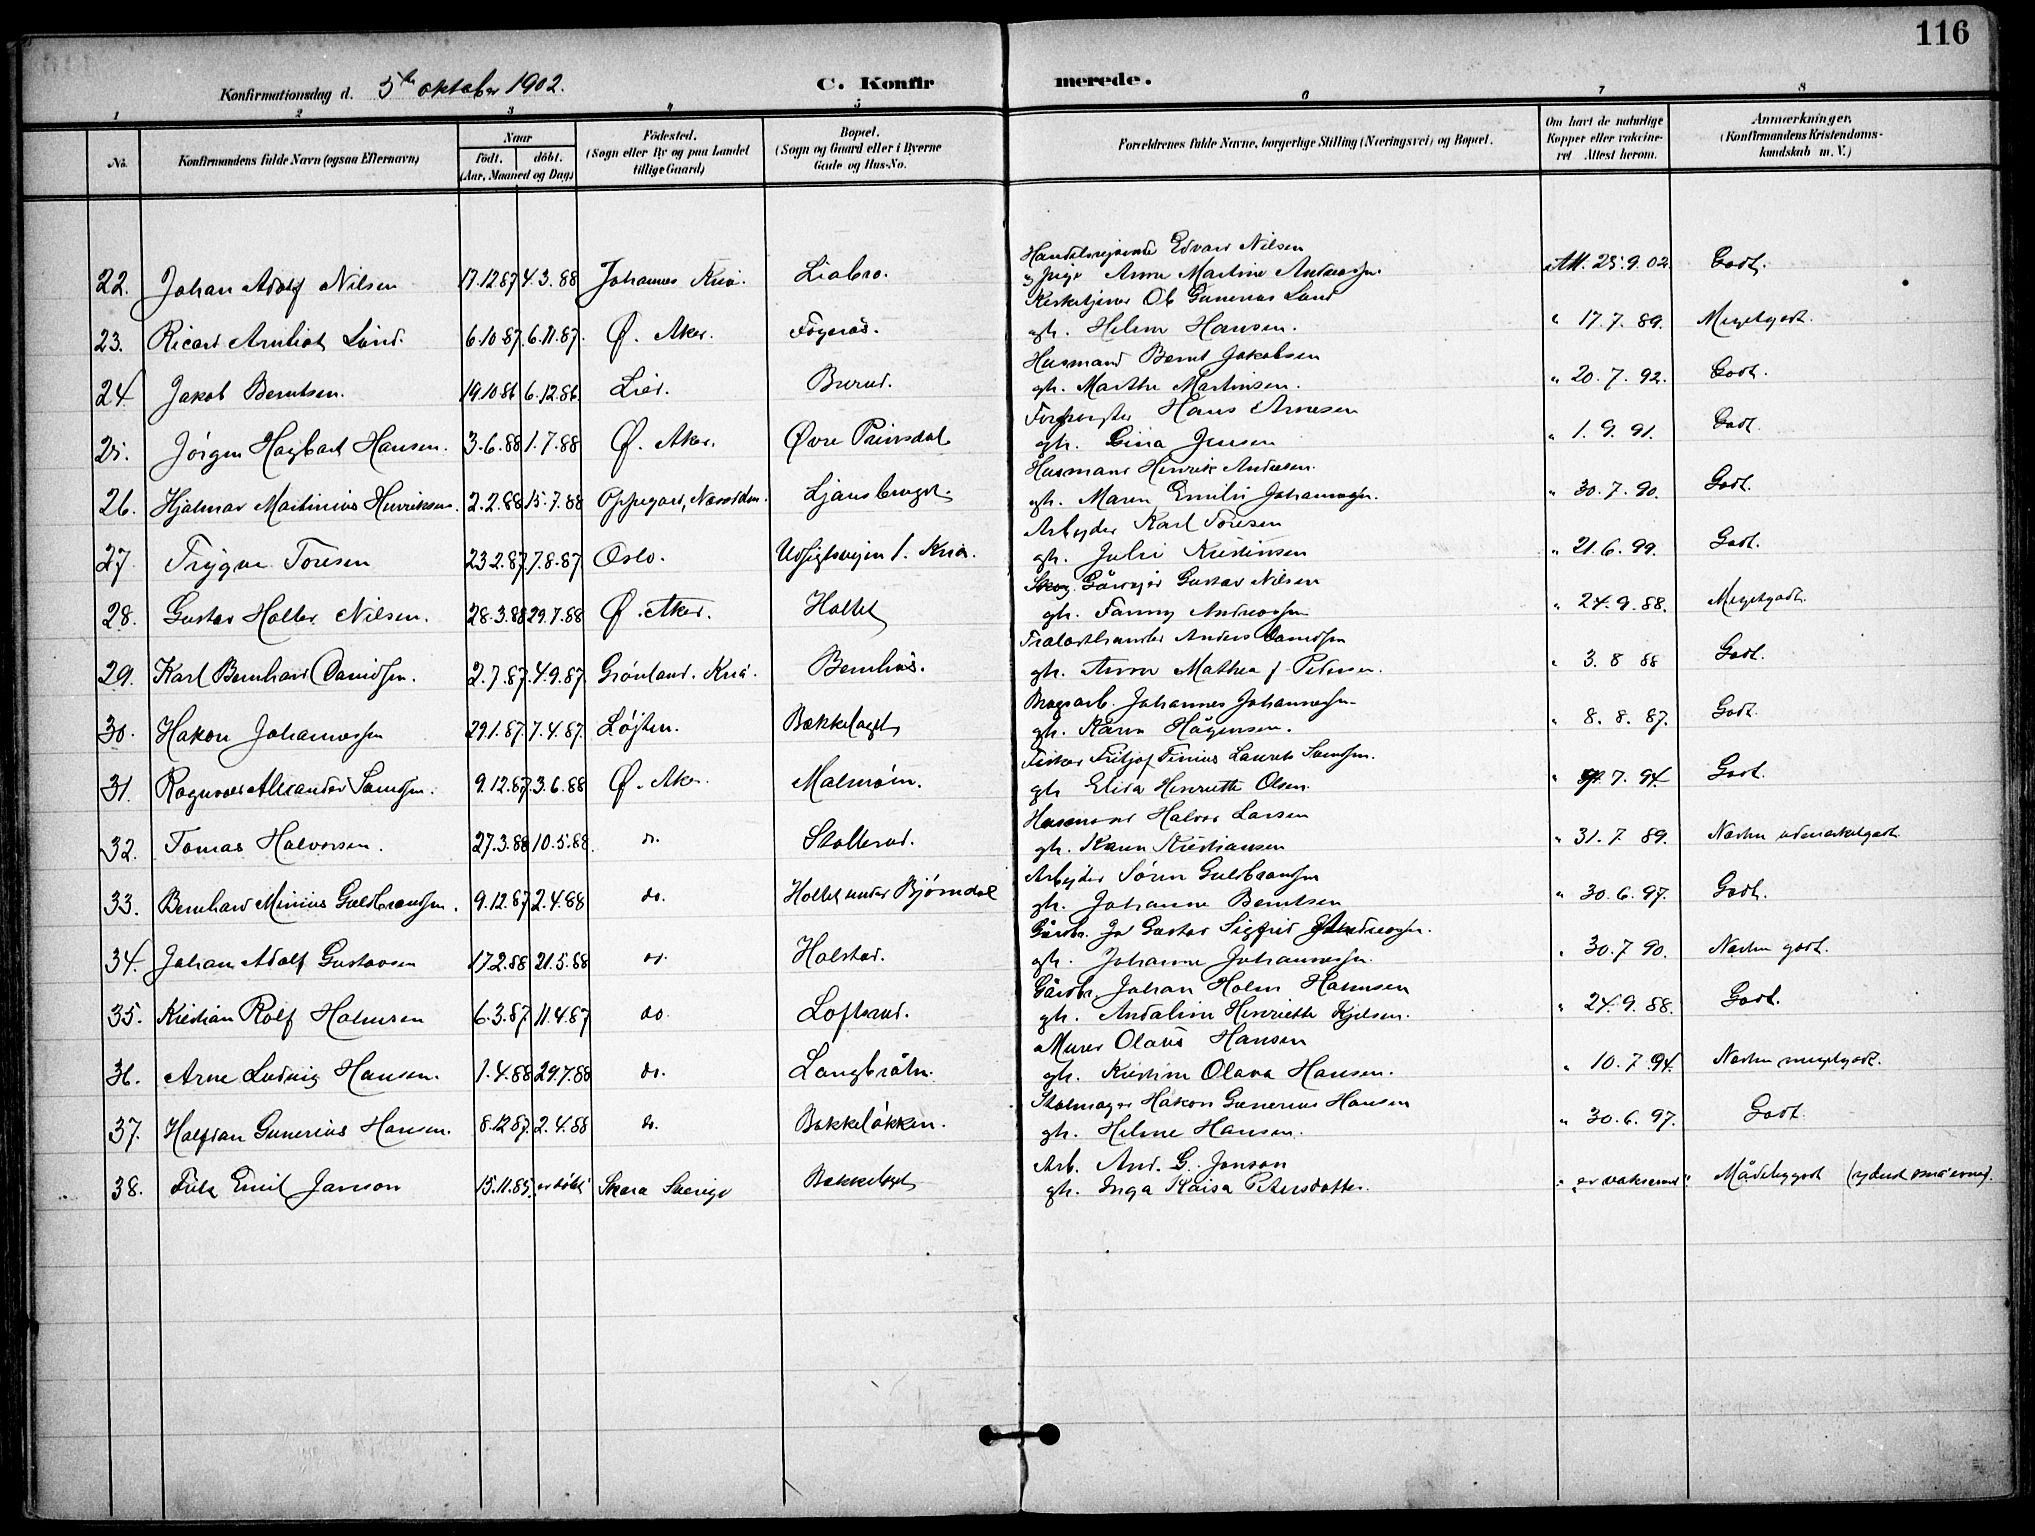 116
Konfirmationsdag d. 5te oktober 1902.
C. Konfirmerede.
1 2 3 4 5 6 7 8
No.
Konfirmandens fulde Navn (ogsaa Efternavn)
Naar født. døbt. (Aar, Maaned og Dag)
Fødested. (Sogn eller By og paa Landet tillige Gaard)
Bopæl. (Sogn og Gaard eller i Byerne Gade og Hus-No.
Forældrenes fulde Navne, borgerlige Stilling (Næringsvei) og Bopæl.
Om havt de naturlige Kopper eller vakcineret Attest herom.
Anmærkninger. (Konfirmandens Kristendomskundskab m. V.)
Handelsreisende Edvard Nilsen
22. Johan Adolf Nilsen 17.12.87 4.3.88 Johannes Kria. Liabro. pige Anna Martine Andreassen. Att. 25.9.02. Godt.
Kirketjener Ole Gunerius Lund
23. Ricard Arnliot Lund. 6.10.87. 6.11.87. Ø. Aker. gh. Helene Hansen. " 17.7.89. Megetgodt.
Husmand Bernt Jakobsen
24. Jakob Berntsen. 19.10.86 6.12.86. Lier. Burud. gh. Marthe Martinsen. " 20.7.92. Godt.
Hans Arnesen
25. Jørgen Hagbart Hansen. 3.6.88 1.7.88 Ø. Aker. Øvre Prinsdal gh. Gina Jensen " 1.9.91. Godt.
Husmand Henrik Andersen.
26. Hjalmar Martinius Henriksen. 2.2.88 15.7.88 Oppegard, Nesodden. Ljansbruget. gh. Maren Emilie Johannessen. " 30.7.90. Godt.
Arbejder Karl Toresen
27. Trygve Toresen 23.2.87. 7.8.87 Oslo. Udsigtsvejen 1. Kria. gh. Julie Kristinsen " 21.6.99. Godt.
Gårdejer Gustav Nilsen
28. Gustav Holter Nilsen. 28.3.88 29.7.88 Ø. Aker. Holtet gh. Fanny Andreassen " 24.9.88. Megetgodt.
Trælasthandler Anders Davidsen
29. Karl Bernhard Davidsen. 2.7.87. 4.9.87 Grønland. Kria. Bernhus. gh. Anna Mathea f. Pedersen. " 3.8 88 Godt.
Johannes Johannessen
30. Hakon Johannessen 29.1.87. 7.4.87. Løjten. Bækkelaget gh. Karen Hågensen. " 8.8.87. Godt.
Fisker Fritjof Tinius Laurits Samsen.
31. Ragnvald Alexander Samsen. 9.12.87. 3.6.88 Ø. Aker. Malmøen. gh. Elida Henriette Olsen. 7.94 Godt.
Husmand Halvor Larsen
32. Tomas Halvorsen. 27.3.88 10.5.88 do. Stallerud. gh. Karen Kristiansen " 31.7 89. Næsten udmerketgodt.
Arbejder Søren Guldbrandsen
33. Bernhard Minius Guldbrandsen. 9.12.87 2.4.88 do. Holtet under Bjørndal gh. Johanne Berntsen " 30.6.97. Godt.
Gårdbr. Jo Gustav Sigfrid Andreassen.
34. Johan Adolf Gustavsen 17.2.88 21.5.88 do. Halstad. gh. Johanne Johannessen. " 30.7 90. Næsten godt.
Gårdbr. Johan Holm Halmsen
35. Kristian Rolf Halmsen 6.3.87 11.4.87 do. Lofsrud. gh. Andaline Henriette Kjelsen. " 24.9.88. Godt.
Murer Olaus Hansen
36. Arne Ludvig Hansen. 1.4.88 29.7.88 do. Langbråten. gh. Kristine Olava Hansen. " 10.7.94. Næsten megetgodt.
Stolmager Håkon Gunerius Hansen
37. Halfdan Gunerius Hansen. 8.12.87. 2.4.88 do. Bakkeløkken. gh. Helene Hansen. " 30.6.97. Godt.
Arb. And. G. Janson
38. Felix Emil Janson 15.11.85. er døbt Skara Sverige Bækkelaget gh. Inga Kaisa Petersdatter. "er vaksinert" Mådeliggodt